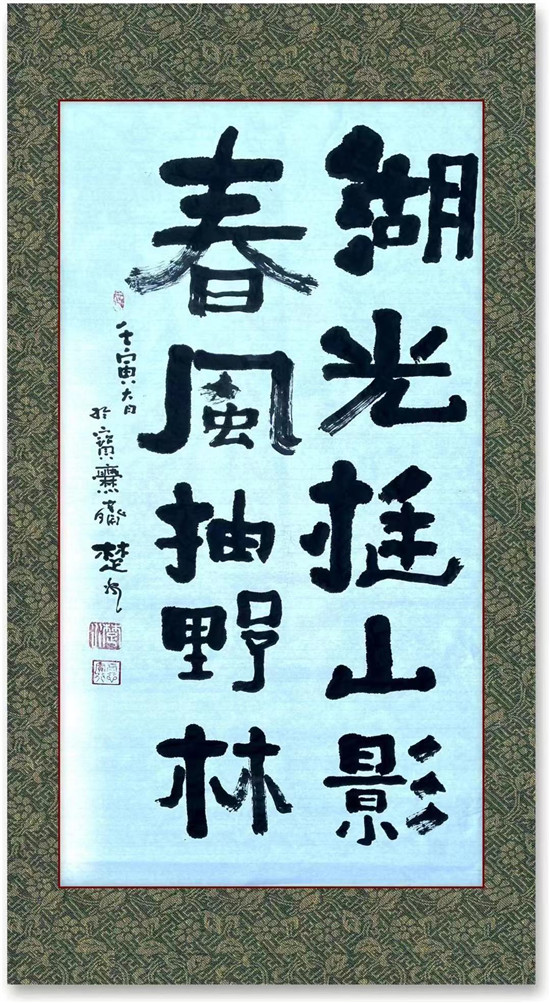 湖光挺山影
春風抽野林
壬寅六月
於寶 齋 楚